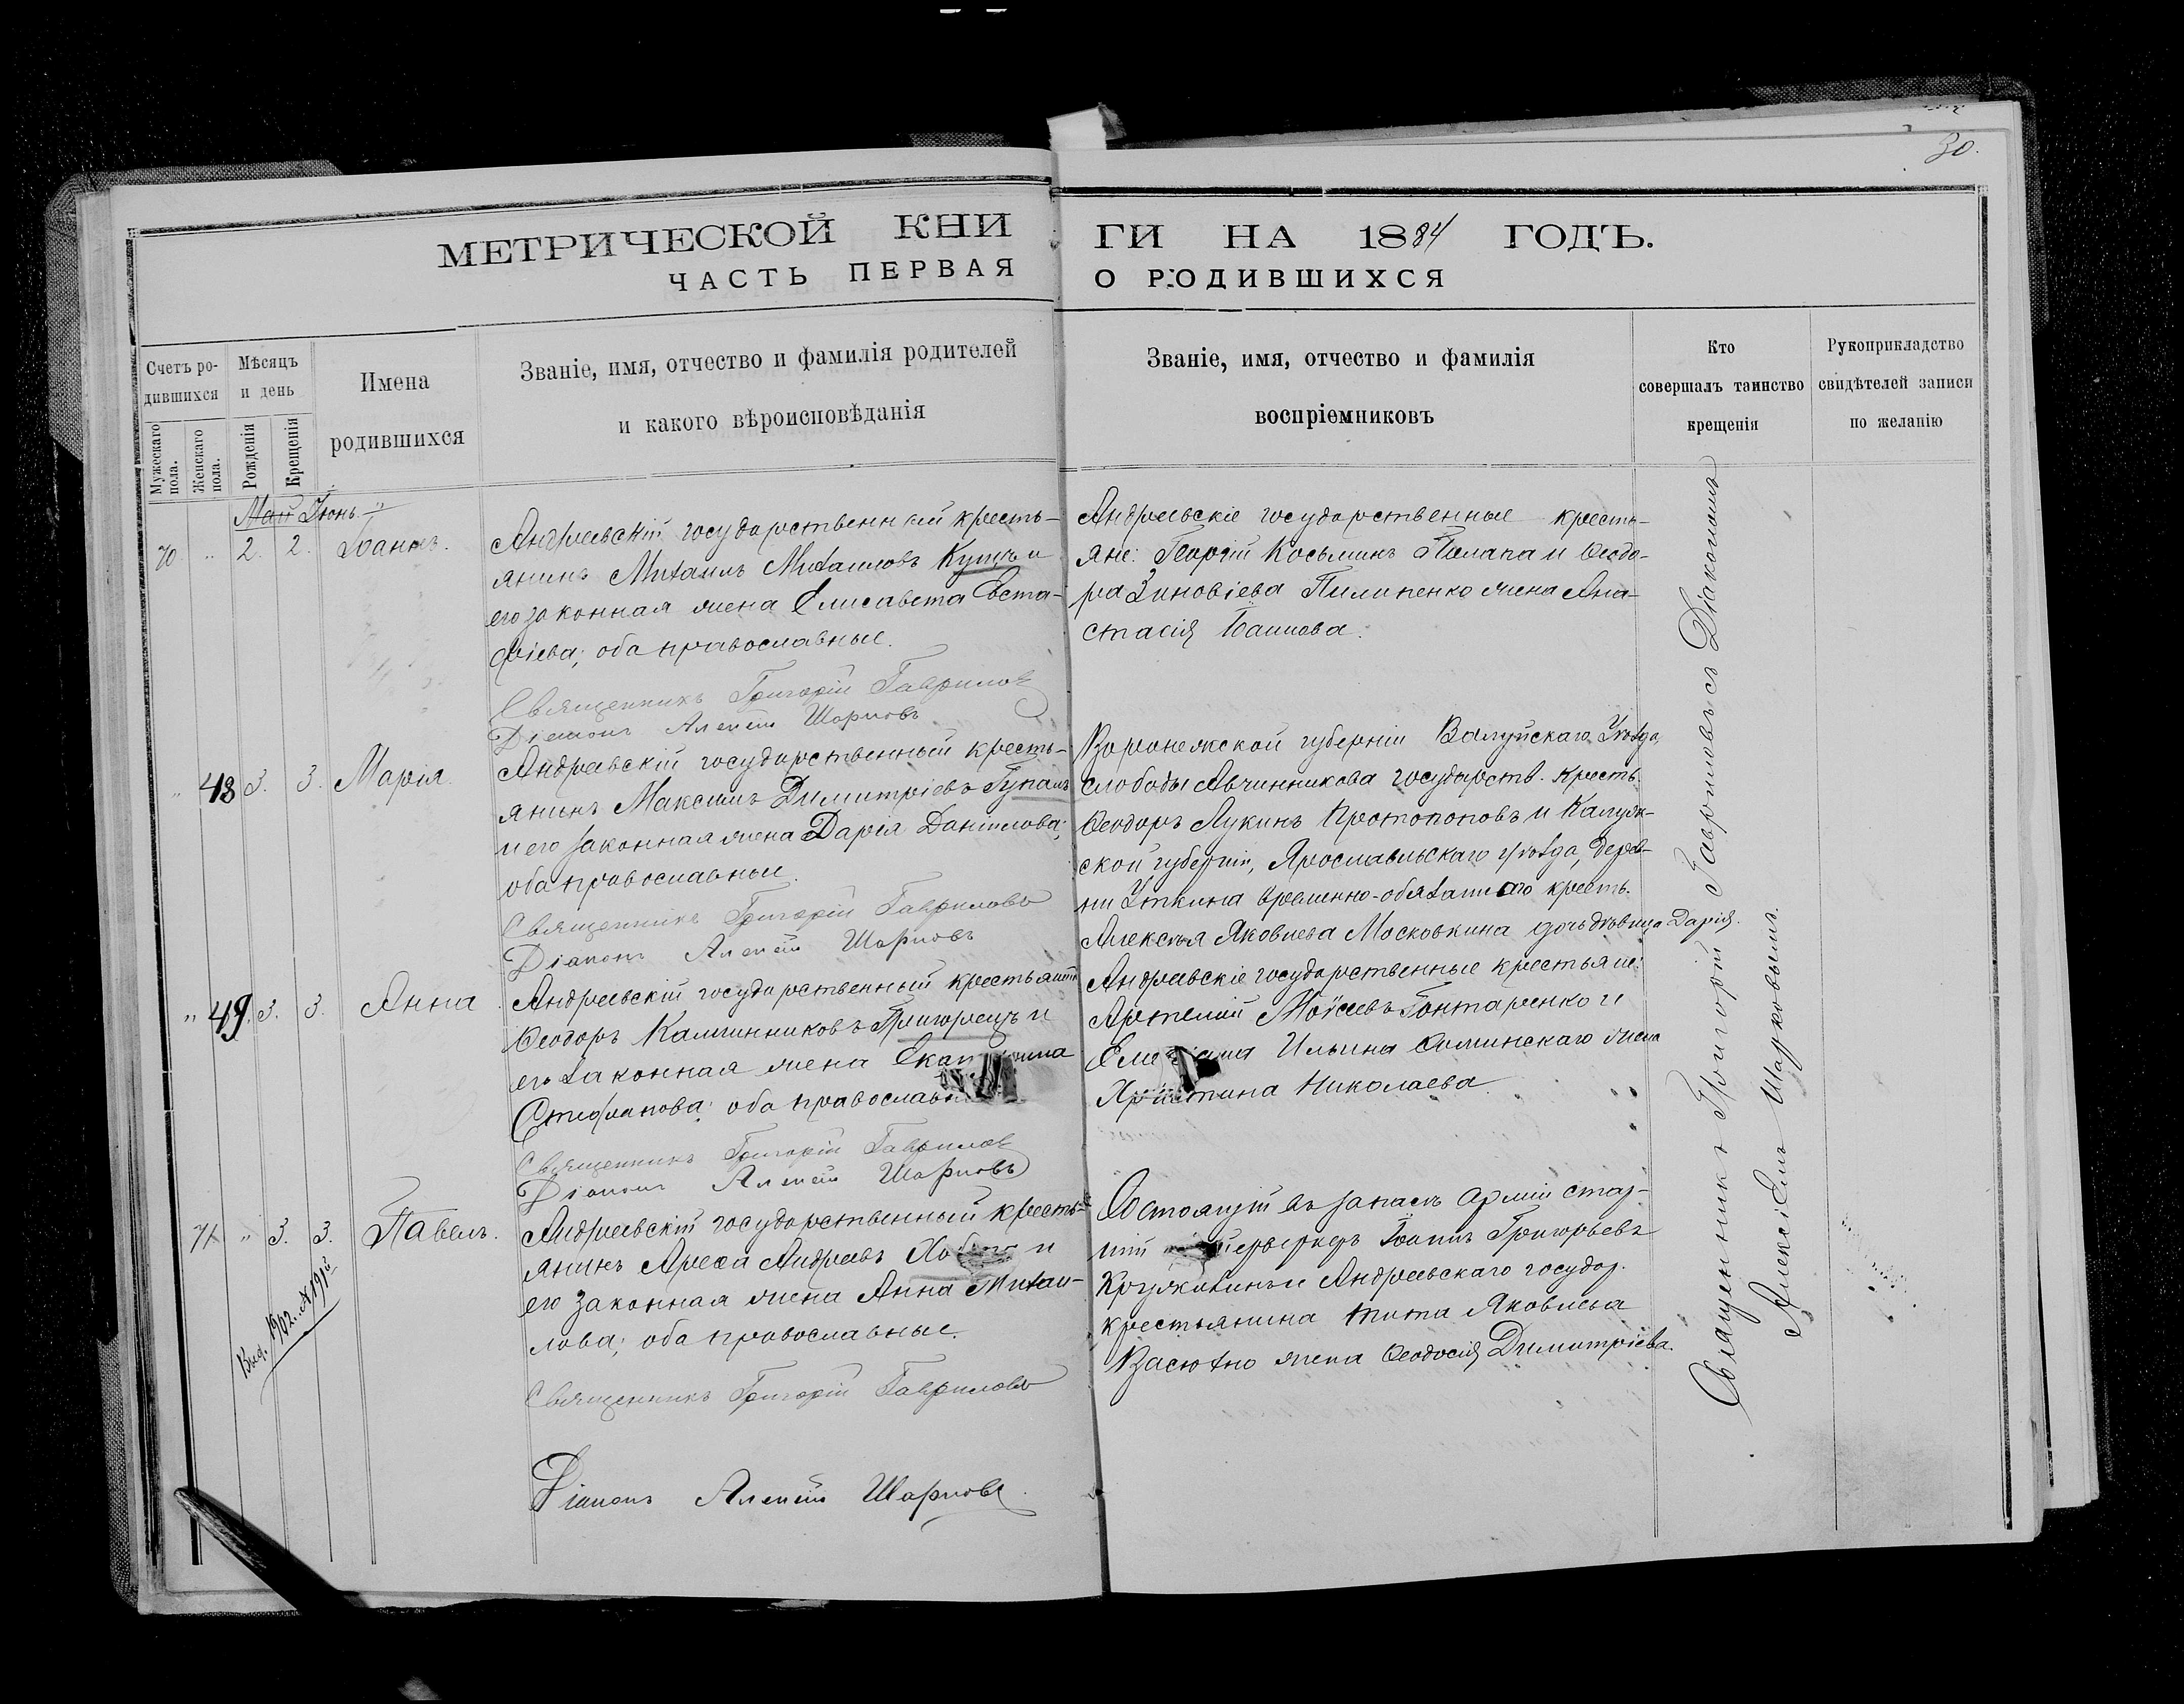 30.
МЕТРИЧЕСКОЙ КНИ
ГИ НА 1884 ГОДЪ.
ЧАСТЬ ПЕРВАЯ
О РОДИВШИХСЯ
Счетъ ро-
дившихся
Мужескаго пола.
Женскаго пола.
Мѣсяцъ
и день
Рожденія
Крещенія
Имена
родившихся
Званіе, имя, отчество и фамилія родителей
и какого вѣроисповѣданія
Званіе, имя, отчество и фамилія
воспріемниковъ
Кто
совершалъ таинство
крещенія
Рукоприкладство
свидѣтелей записи
по желанію
Май Іюнь
70 " 2. 2. Іоаннъ.
Андреевскій государственный кресть-
янинъ Михаилъ Михаиловъ Куцъ и
его законная жена Елисавета Евста-
фіева; оба православные.
Священникъ Григорій Гавриловъ
Діаконъ Алексій Шарковъ
Андреевскіе государственные кресть-
яне: Георгій Косьминъ Палапа и Ѳеодо-
ра Зиновіева Пилипенко жена Ана-
стасія
" 48 3. 3. Марія
Андреевскій государственный кресть-
янинъ Максимъ Димитріевъ Гупалъ
и его законная жена Дарія Даніилова;
оба православные.
Священникъ Григорій Гавриловъ
Діаконъ Алексій Шарковъ
Воронежской губерніи Валуйскаго Уѣзда,
слободы Авчинникова государств. кресть.
Ѳеодоръ Лукинъ Протопоповъ и Калуж-
ской губерніи, Ярославльскаго уѣзда, дерев-
ни Уткина временно-обязаннаго кресть.
Алексѣя Яковлева Московкина дочь дѣвица Дарія.
" 49. 3. 3. Анна
Андреевскій государственный крестьянинъ
Ѳеодоръ Каллинниковъ Григорецъ и
его законная жена
Стефанова; оба
Священникъ Григорій Гавриловъ
Діаконъ Алексій Шарковъ
Андреевскіе государственные крестьяне:
Артемій Моѵсеевъ Гонтаренко и
Ильина Симинскаго жена
Христина Николаева
71 " 3. 3. Павелъ.
Выд. 1902. № 191й
Андреевскій государственный кресть-
янинъ Андреевъ и
его законная жена Анна Михаи-
лова; оба православные.
Священникъ Григорій Гавриловъ
Діаконъ Алексій Шарковъ
Состоящій въ запасѣ арміи стар-
шій Іоаннъ Григорьевъ
и Андреевскаго государ.
крестьянина Тита Яковлева
жена Ѳеодосія Димитріева.
Священникъ Григорій Гавриловъ съ Діакономъ
Алексіемъ Шарковымъ.